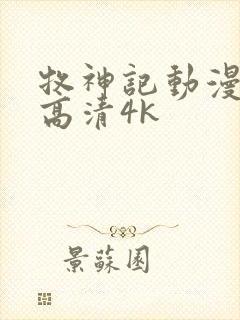 牧神記動漫
高清4K
景蘇園